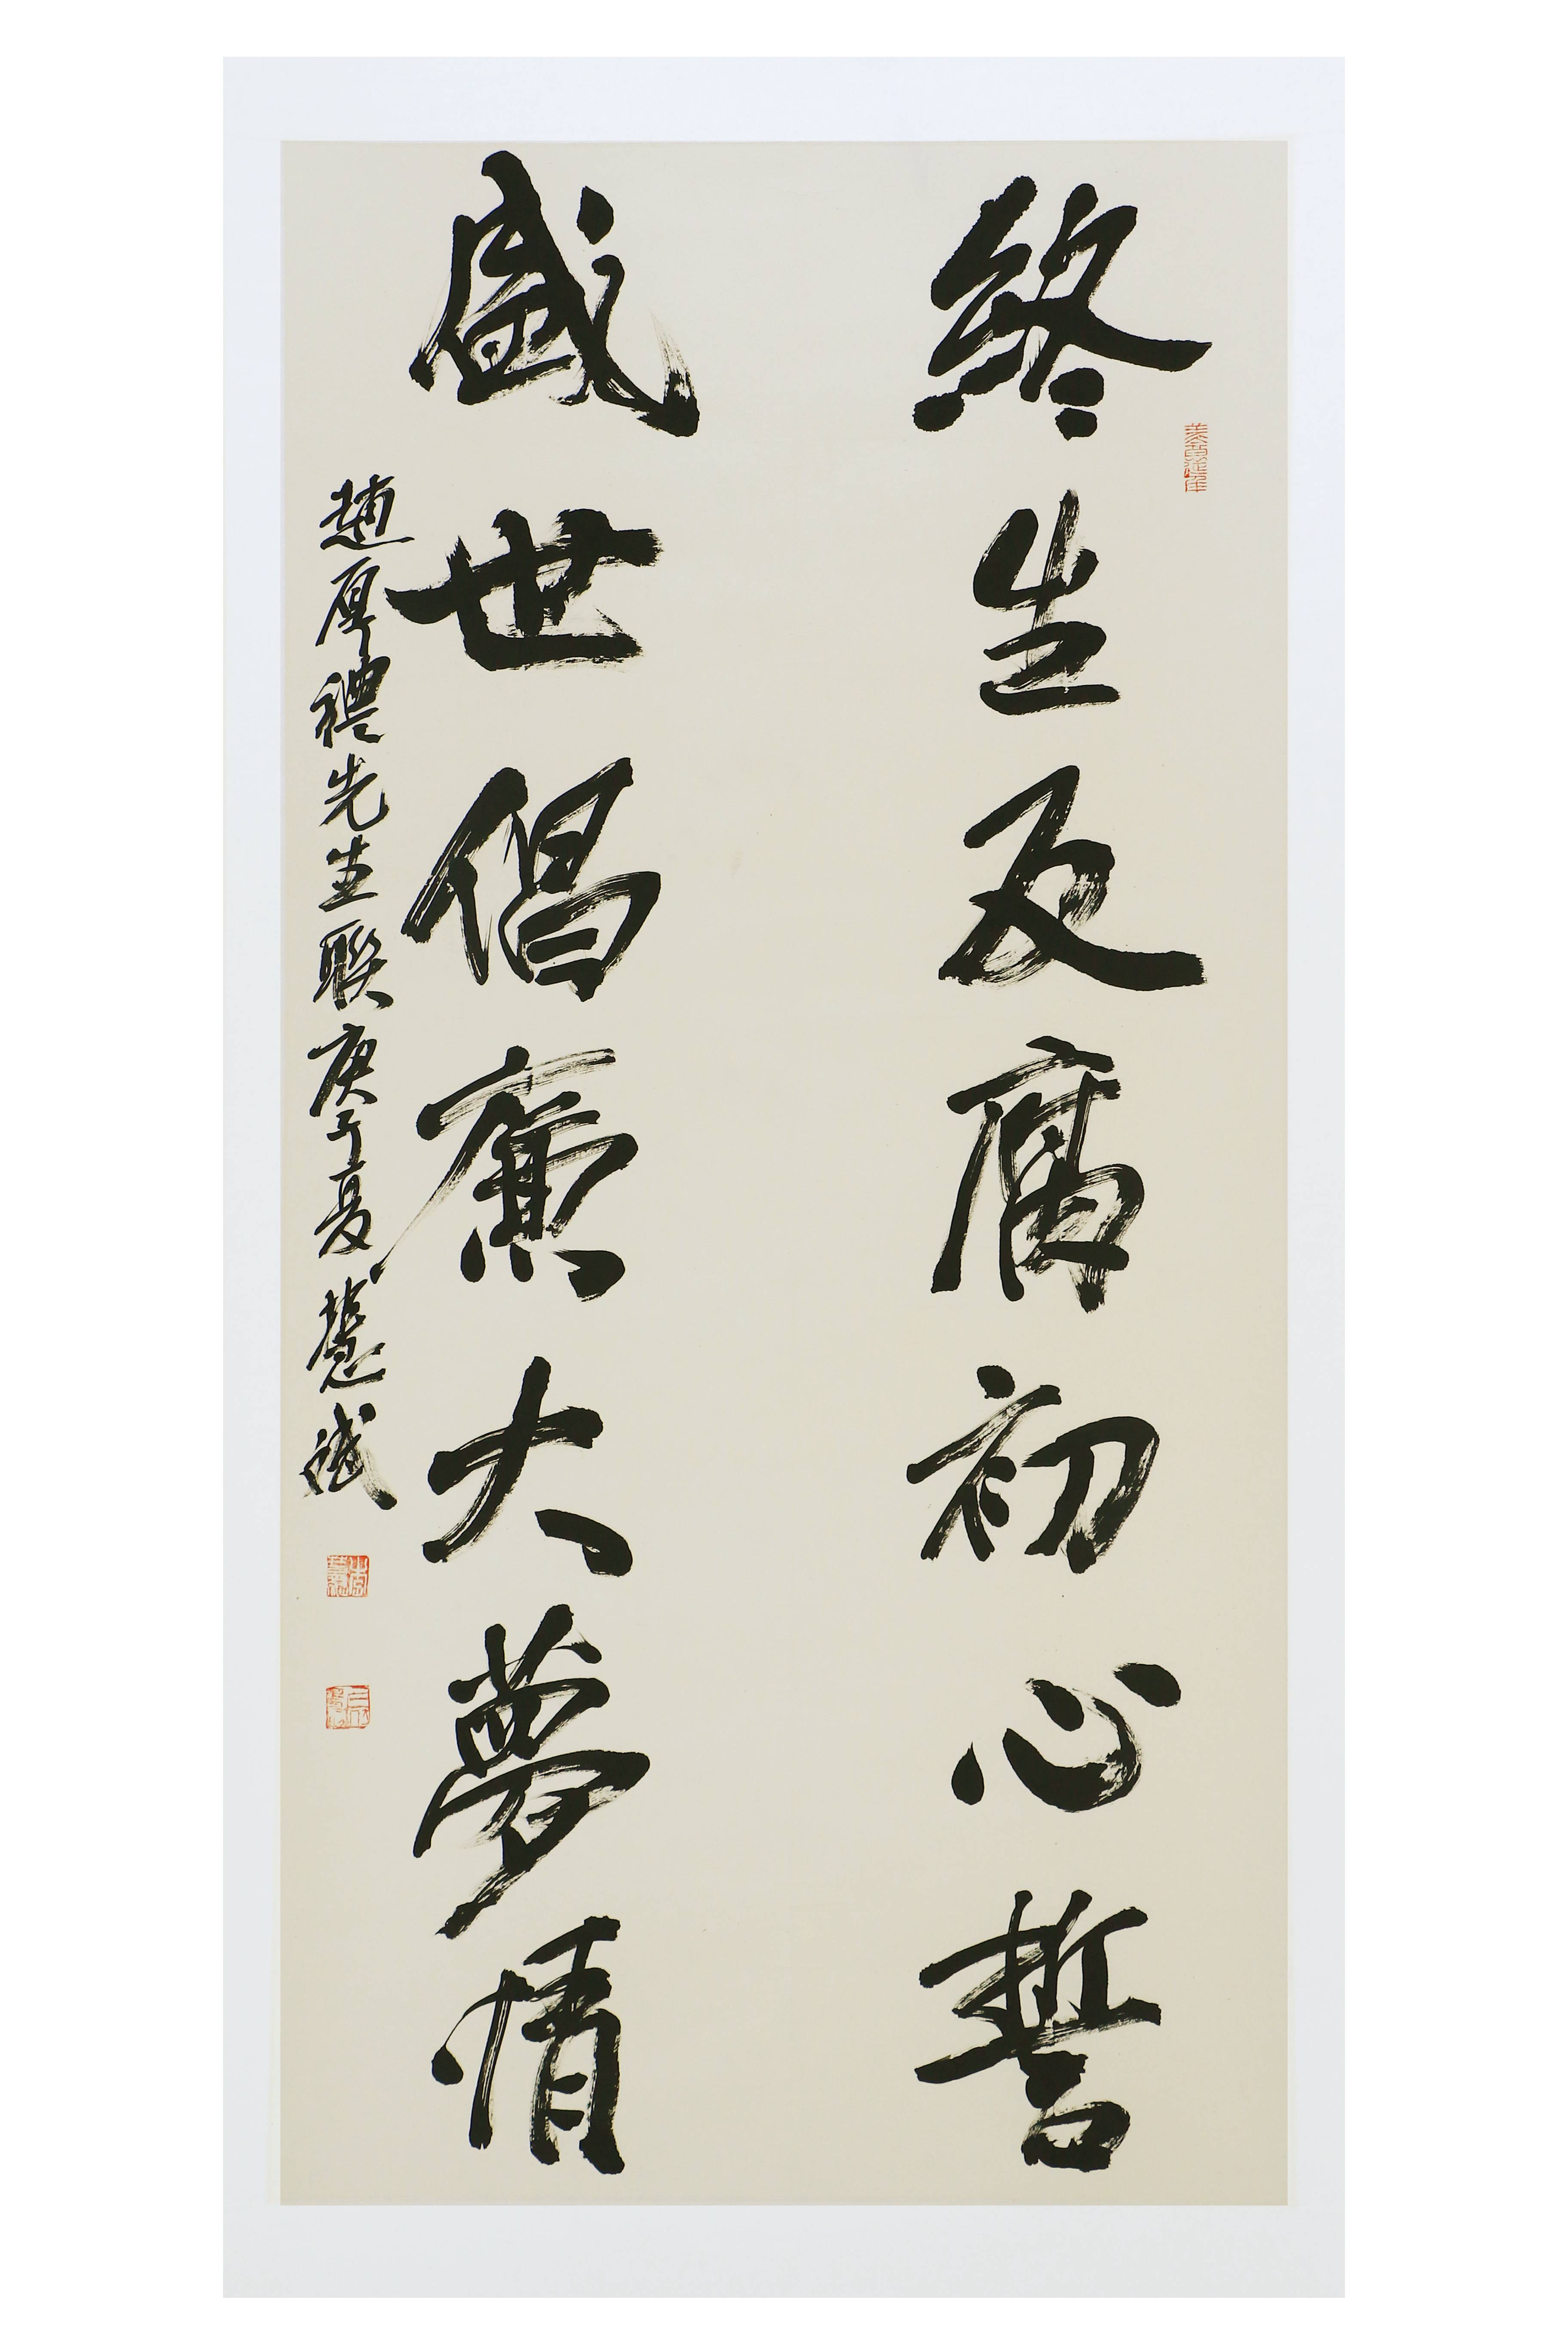 終生反腐初心誓
盛世倡廉大夢情
趙厚禮先生聯庚子夏慧斌